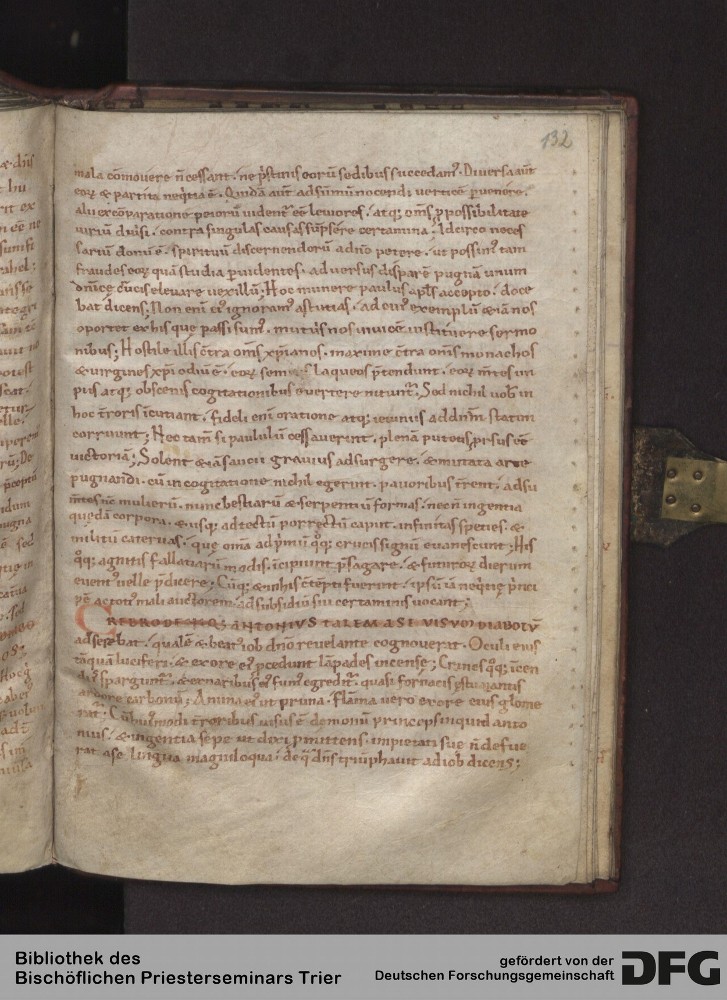 132
mala cōmovere ñ cessant. ne p̄stinis eorū sedibus succedam᷒. Diversa aūt
eoꝝ & partita neq̇tia ē. Quidā aūt ad sūmū nocendi verticē p̱venere.
alii ex cōparatione peiorū videnť eē leviores. atq; om̄s ꝓ possibilitate
viriū divisi. contra singulas causas sūpsere certamina. Idcirco neces
sariū donū ē. spirituū discernendorū a dn̄o petere. ut possim᷒ tam
fraudes eoꝝ quā studia p̱videntes. adversus disparē pugnā unum
dn̄icę crucis elevare vexillū; Hoc munere paulus apl̄s accepto. doce
bat dicens; Non enī ei᷒ ignoram᷒ astutias. ad cui᷒ exemplū &iā nos
oportet ex his que passi sum᷒. mutuis nos invicē instituere sermo
nibus; Hostile illis c̄tra om̄s xp̄ianos. maxime c̄tra om̄s monachos
& virgines xp̄i odiū ē. eoꝝ semitis laqueos p̄tendunt. eoꝝ m̄tes im
piis atq; obscenis cogitationibus evertere nitunť. Sed nichil vob̄ in
hoc t̄roris īcutiant. fideli enī oratione atq; ieiuniis ad dn̄m statim
corruunt; Nec tam̄ si paululū cessaverint. plenā putetis p̱rsus eē
victoriā; Solent &iā saucii gravius adsurgere. & mutata arte
pugnandi. cū in cogitatione nichil egerint. pavoribus t̄rent. adsu
m̄tes nc̄ mulierū. nunc bestiarū & serpentiū formas. necn̄ ingentia
quędā corpora. & usq; ad tectū porrectū caput. infinitas species. &
militū catervas. quę om̄a ad p̱mū q̇q; crucis signū evanescunt; His
q̇q; agnitis fallatiarū modis. īcipiunt p̄sagare. & futuroꝝ dierum
event᷒ velle p̄dicere; Cūq; & in his c̄tēpti fuerint. ipsū iā neq̇tię p̱nci
pē ac toti᷒ mali auctorem. ad subsidiū sui certaminis vocant;
CREBRO DENIQ; ANTONIVS TALEM A SE VISVM DIABOLŪ
adserebat. qualē & beat᷒ iob dn̄o revelante cognoverat. Oculi eius
tāquā luciferi. & ex ore ei᷒ p̱cedunt lāpades incensę; Crines q̇q; īcen
diis sparguntʾ. & ex naribus ei᷒ fum᷒ egreditʾ. quasi fornacis ęstuantis
ardore carbonū; Anima ei᷒ ut pruna. flāma vero ex ore eius glome
ratʾ. Cū hui᷒modi t̄roribus visus ē demonū princeps inquid anto
nius. & ingentia sępe ut dixi p̱mittens. impietati suę ñ defue
rat a se lingua magniloqua. de q̇ dn̄s triūphavit ad iob dicens;
Bibliothek des
Bischöflichen Priesterseminars Trier
gefördert von der
Deutschen Forschungsgemeinschaft
DFG